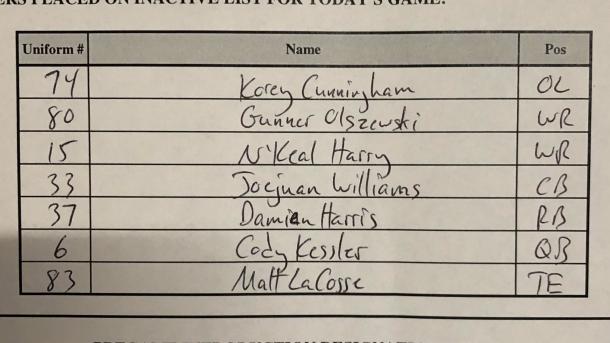 PLACED ON INACTIVE LIST FOR TODAY'S GAME:
Uniform # Name Pos
74 Korey Cunningham OL
80 Gunner Olszewski WR
15 N'Keal Harry WR
33 Joejuan Williams CB
37 Damien Harris RB
6 Cody Kessler QB
83 Matt LaCosse TE